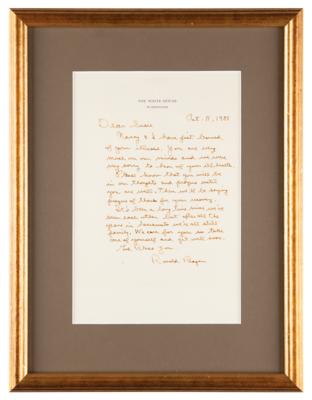 THE WHITE HOUSE
WASHINGTON
Oct. 11, 1988
Dear
Nancy & I have just learned
of your illness. You are very
much on our minds and we were
very sorry to hear of your ill health.
Please know that you will be
in our thoughts and prayers until
you are well. Then we'll be saying
prayers of thanks for your recovery.
It's been a long time since we've
seen each other but after all the
years in Sacramento we're all still
family. We care for you so take
care of yourself and get well soon.
God Bless You
Ronald Reagan